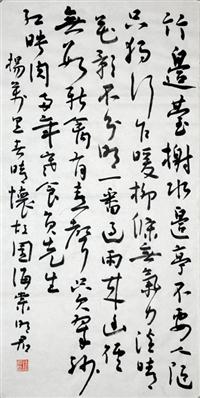 竹邊臺榭水邊亭不要人隨
只獨行乍暖柳條無氣力淡晴
花影不分明一番過雨來幽徑
無數新禽有喜聲只欠翠紗
紅映肉兩年寒食負先生
楊萬里春晴懷故園海棠